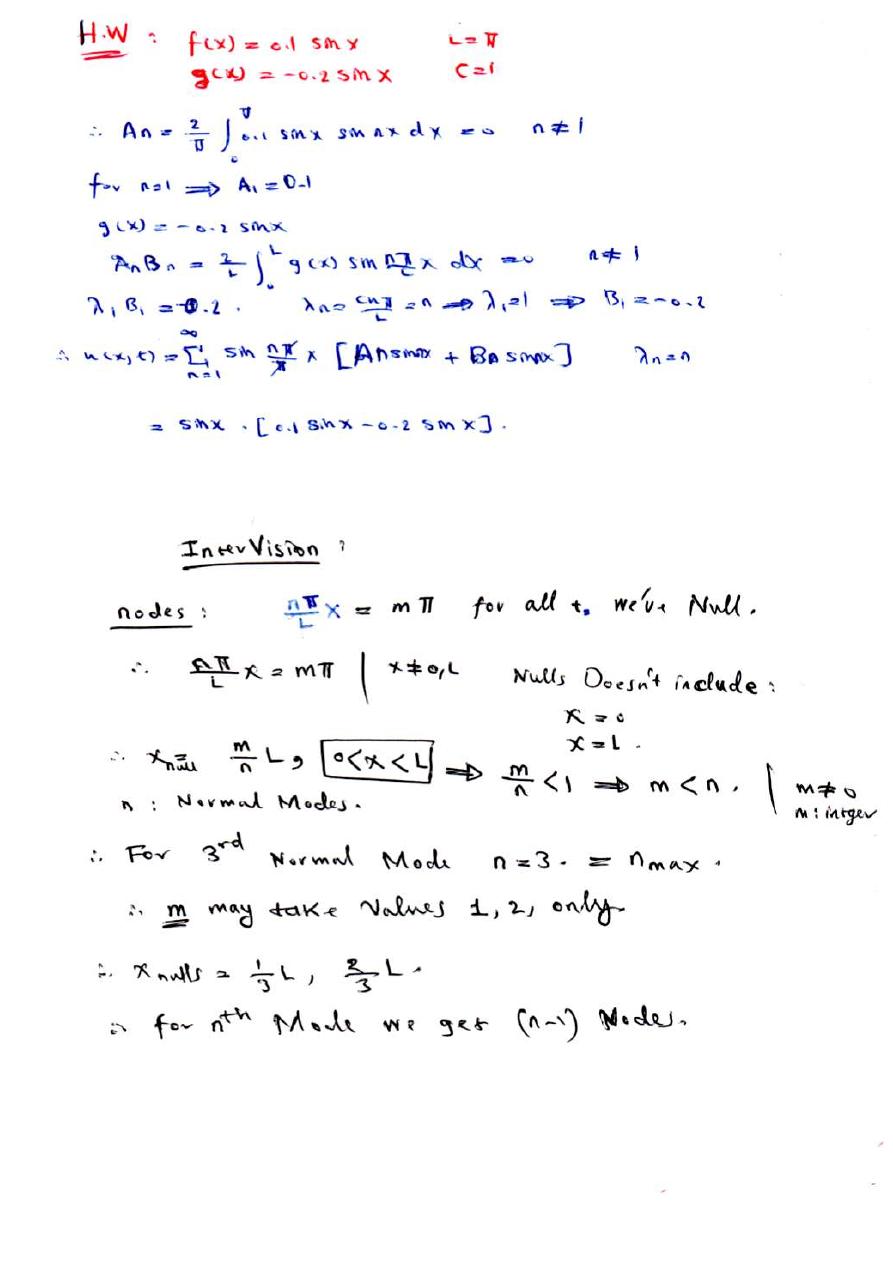 H.W : f(x) = 0.1 sin x L = π
g(x) = -0.2 sin x C = 1
∴ An = 2/π ∫₀^π 0.1 sin x sin nx dx = 0 n ≠ 1
for n=1 ⟹ A₁ = 0.1
g(x) = -0.2 sin x
λnBn = 2/L ∫₀^L g(x) sin nπ/L x dx = 0 n ≠ 1
λ₁B₁ = -0.2 . λn = cnπ/L = n ⟹ λ₁=1 ⟹ B₁ = -0.2
∴ u(x,t) = Σ_{n=1}^∞ sin nπ/π x [An sin nx + Bn sin nx] λn = n
= sin x . [0.1 sin x - 0.2 sin x] .
InterVision :
nodes : nπ/L x = mπ for all t, we've Null.
∴ nπ/L x = mπ | x ≠ 0, L Nulls Doesn't include :
x = 0
x = L .
∴ x_null = m/n L, 0<x<L ⟹ m/n < 1 ⟹ m < n . | m ≠ 0
n : Normal Modes. m : intger
∴ For 3rd Normal Mode n = 3 . = nmax .
∴ m may take Values 1, 2, only
∴ x nulls = 1/3 L, 2/3 L .
∴ for nth Mode we get (n-1) Nodes.